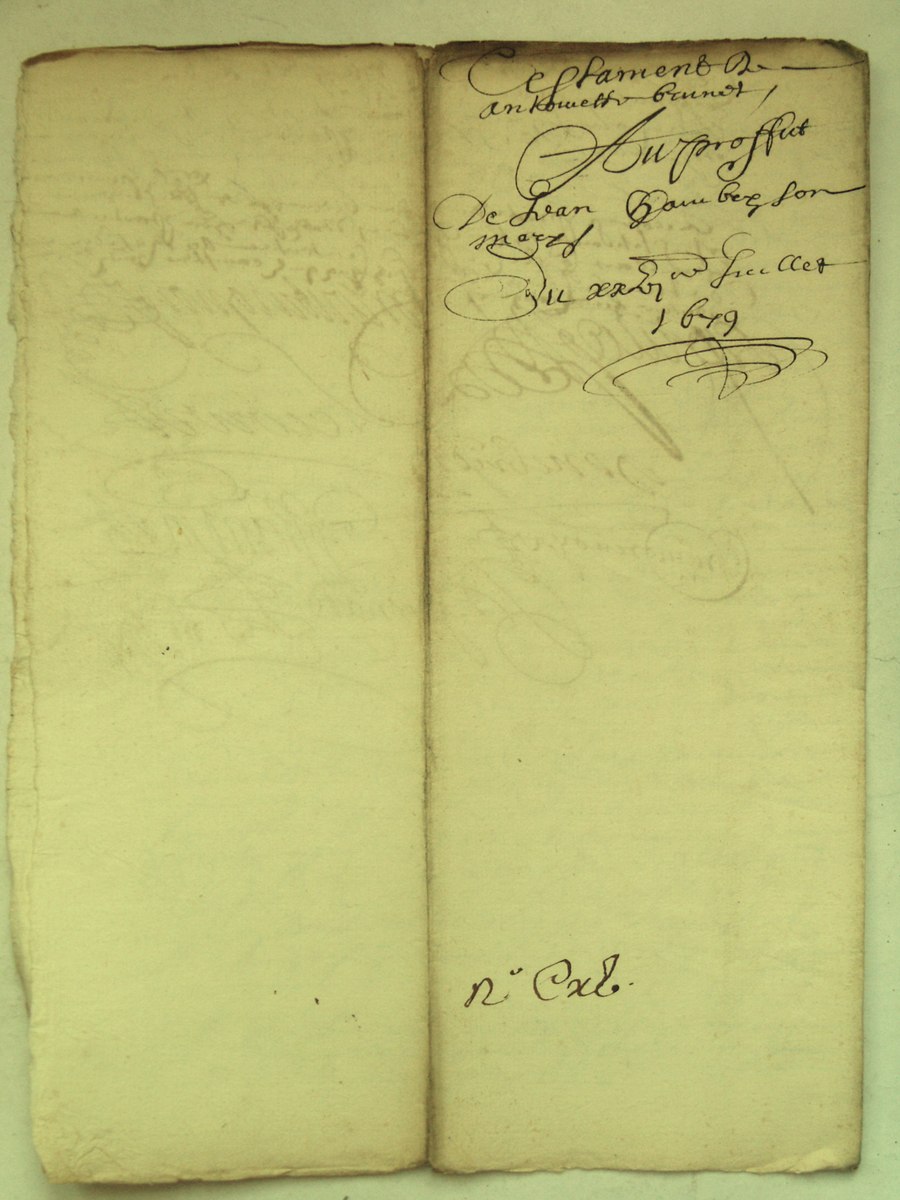 Testament De
anthoinette brunet,
Au proffict
De Jean Hambey son
mary
Du xxvi me Juillet
1679
No Cxl.